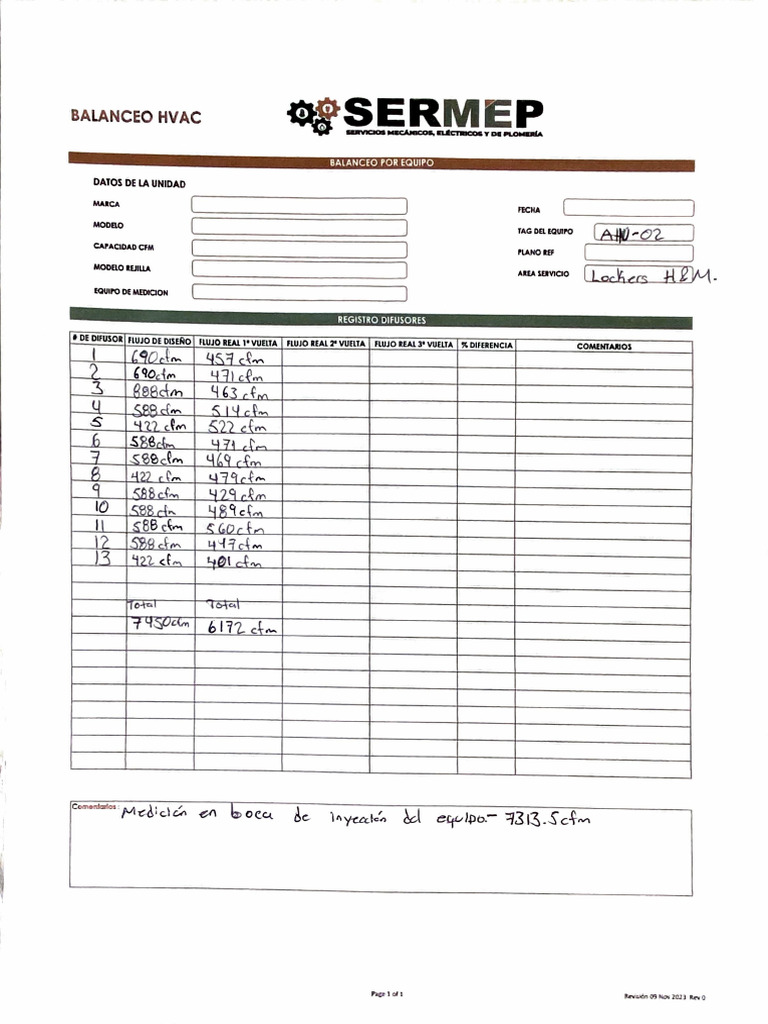 BALANCEO HVAC
SERMEP
SERVICIOS MECÁNICOS, ELÉCTRICOS Y DE PLOMERÍA
BALANCEO POR EQUIPO
DATOS DE LA UNIDAD
MARCA
FECHA
MODELO
TAG DEL EQUIPO AHU-02
CAPACIDAD CFM
PLANO REF
MODELO REJILLA
AREA SERVICIO Lockers H&M.
EQUIPO DE MEDICION
REGISTRO DIFUSORES
# DE DIFUSOR FLUJO DE DISEÑO FLUJO REAL 1ª VUELTA FLUJO REAL 2ª VUELTA FLUJO REAL 3ª VUELTA % DIFERENCIA COMENTARIOS
1 690cfm 457 cfm
2 690cfm 471 cfm
3 888cfm 463 cfm
4 588cfm 514 cfm
5 422 cfm 522 cfm
6 588cfm 471 cfm
7 588cfm 469 cfm
8 422 cfm 479 cfm
9 588cfm 429 cfm
10 588cfm 489 cfm
11 588 cfm 560 cfm
12 588 cfm 447 cfm
13 422 cfm 401 cfm
Total Total
7450cfm 6172 cfm
Comentarios: Medición en boca de inyección del equipo.- 7313.5 cfm
Page 1 of 1
Revisión 09 Nov 2023 Rev 0